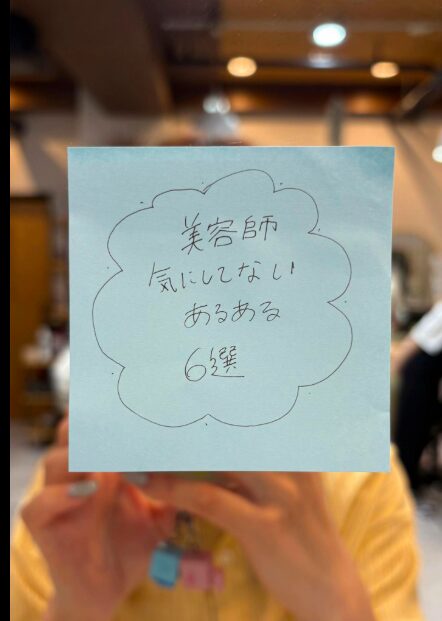 美容師
気にしてない
あるある
6選